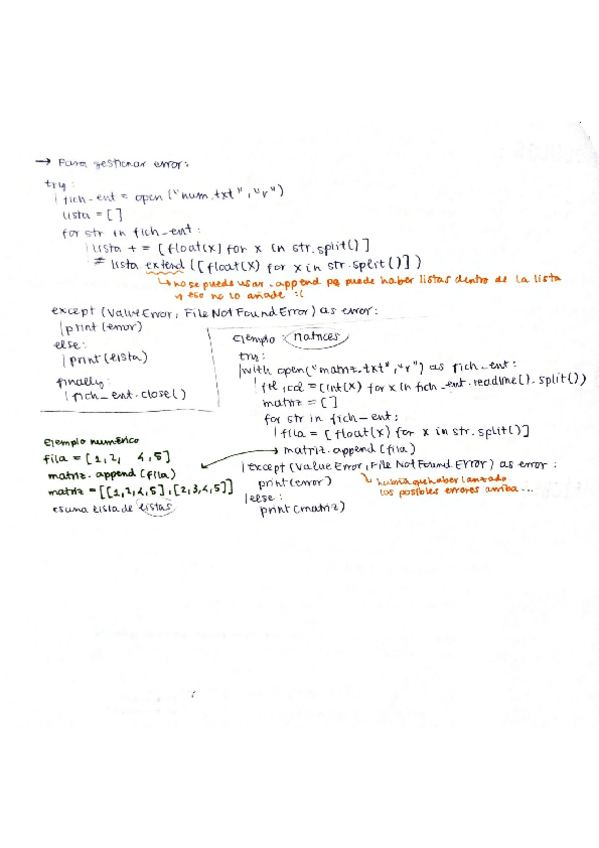 → Para gestionar error:
try:
fich_ent = open ("num.txt", "r")
lista = [ ]
for str in fich_ent:
lista + = [float(x) for x in str.split()]
≠ lista extend ([float(x) for x in str.split()])
↳ no se puede usar .append pq puede haber listas dentro de la lista
y eso no lo añade :(
except (ValueError, FileNotFoundError) as error:
print(error)
else:
print(lista)
finally:
fich_ent.close()
Ejemplo: matrices
try:
with open("matriz.txt", "r") as fich_ent:
fil, col = (int(x) for x in fich_ent.readline().split())
matriz = [ ]
for str in fich_ent:
fila = [float(x) for x in str.split()]
→ matriz.append(fila)
except (ValueError, FileNotFound Error) as error:
print(error)
↳ habría que haber lanzado
los posibles errores arriba...
else:
print(matriz)
Ejemplo numérico
fila = [1,2, 4,5]
matriz.append(fila)
matriz = [[1,2,4,5],[2,3,4,5]]
es una lista de listas